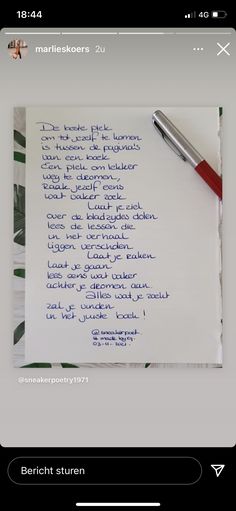 18:44
4G
marlieskoers 2u
De beste plek
om tot jezelf te komen
is tussen de pagina's
van een boek
Een plek om lekker
weg te dromen,
Raak jezelf eens
wat vaker zoek
Laat je ziel
over de bladzydes dolen
lees de lessen die
in het verhaal
liggen verscholen
Laat je raken
laat je gaan
lees eens wat vaker
achter je dromen aan.
Alles wat je zoekt
zal je vinden
in het juiste boek!
@sneakerpoet
is made by
@sneakerpoetry1971
Bericht sturen